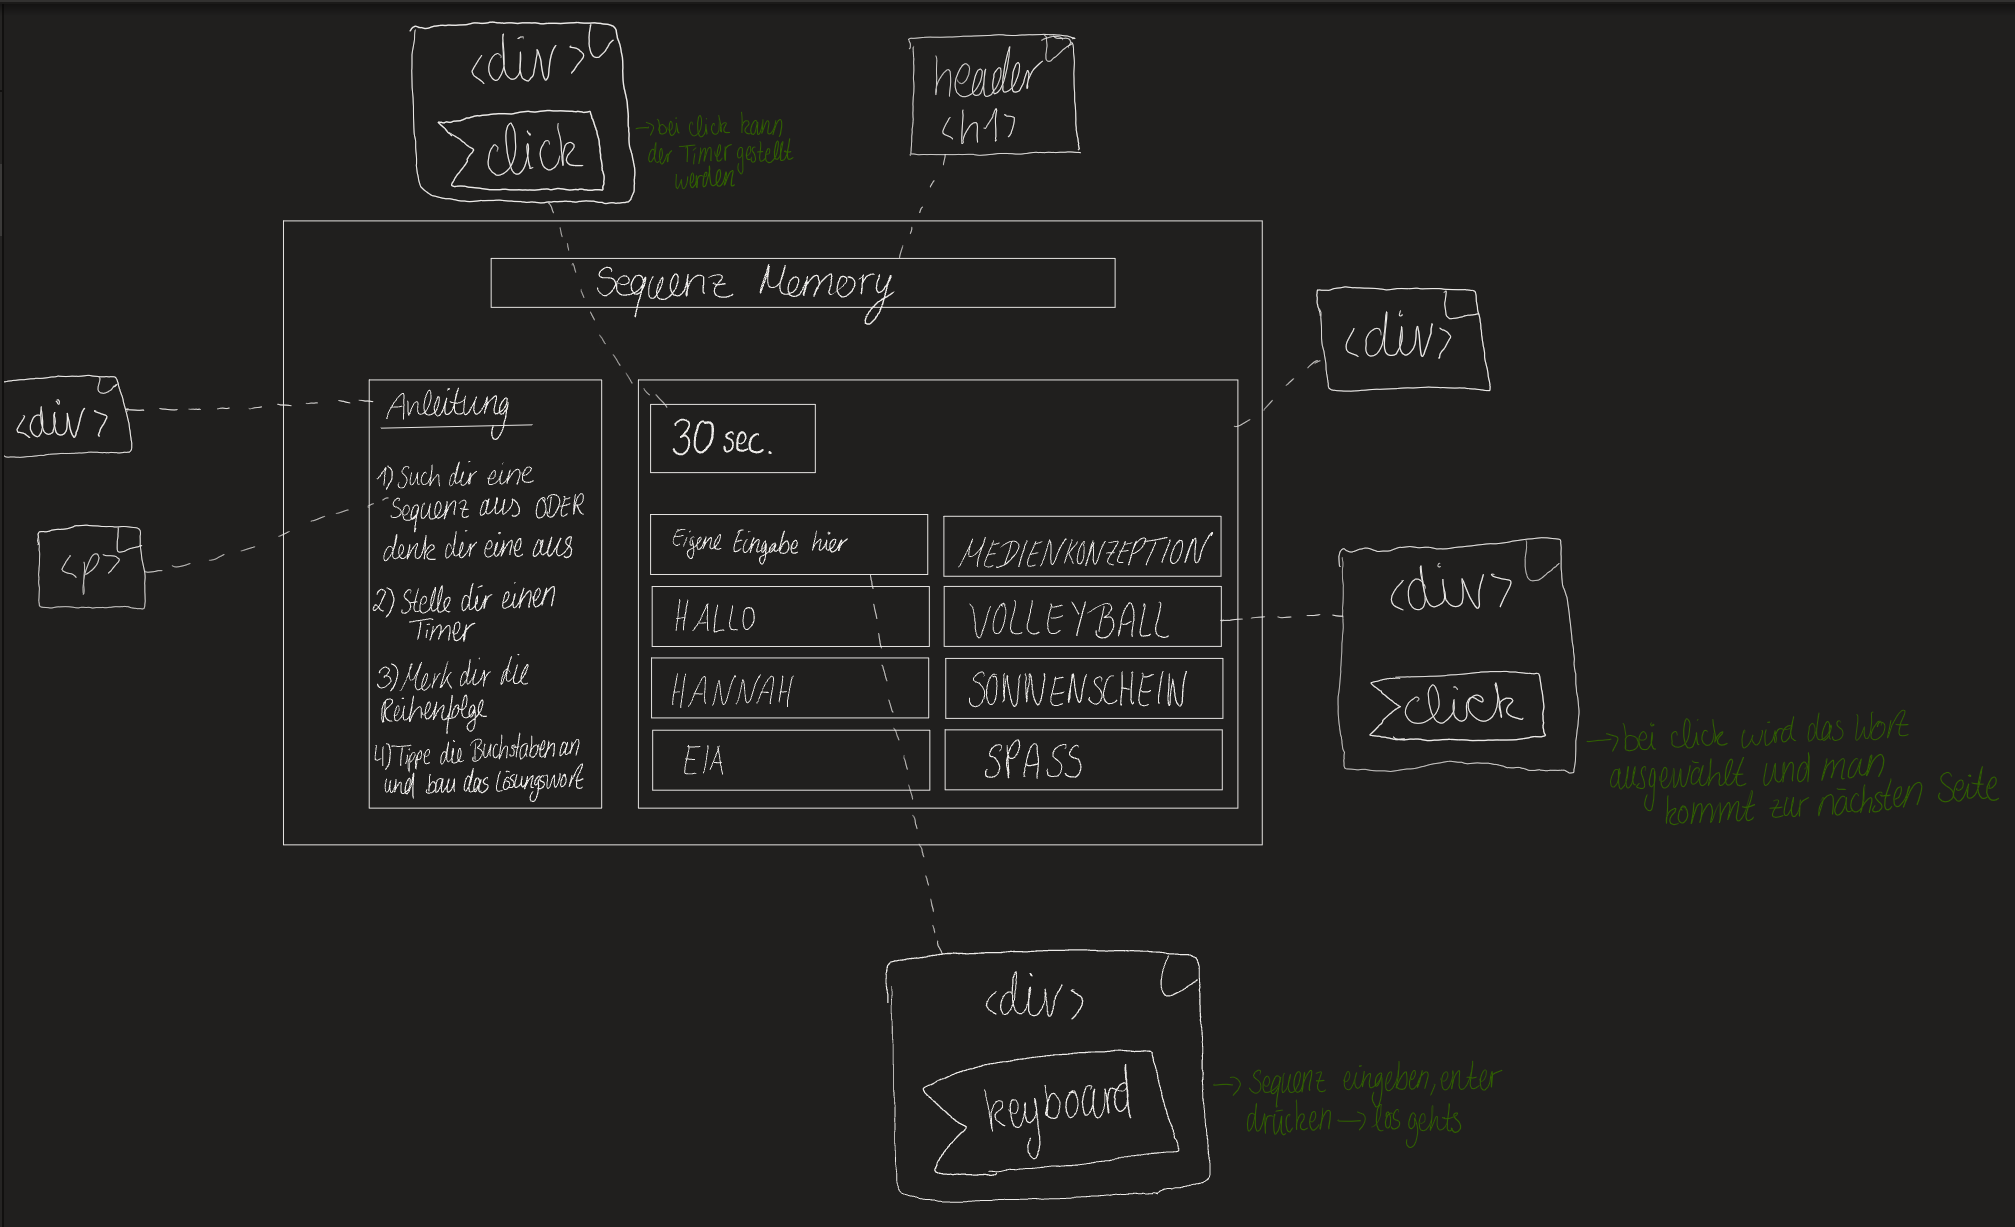 <div>
click
→ bei click kann
der Timer gestellt
werden
header
<h1>
Sequenz Memory
<div>
<div>
<p>
Anleitung
1) Such dir eine
Sequenz aus ODER
denk dir eine aus
2) Stelle dir einen
Timer
3) Merk dir die
Reihenfolge
4) Tippe die Buchstaben an
und bau das Lösungswort
30 sec.
Eigene Eingabe hier
MEDIENKONZEPTION
HALLO
VOLLEYBALL
HANNAH
SONNENSCHEIN
EIA
SPASS
<div>
click
→ bei click wird das Wort
ausgewählt und man
kommt zur nächsten Seite
<div>
keyboard
→ Sequenz eingeben, enter
drücken → los gehts